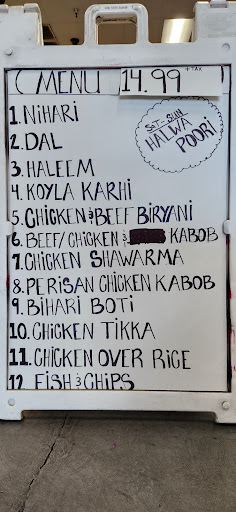 MENU 14.99 +TAX
SAT-SUN
HALWA
POORI
1. NiHARi
2. DAL
3. HALEEM
4. KOYLA KARHi
5. CHiCKEN & BEEF BiRYANi
6. BEEF/CHiCKEN & KABOB
7. CHiCKEN SHAWARMA
8. PERiSAN CHiCKEN KABOB
9. BiHARi BOTi
10. CHiCKEN TiKKA
11. CHiCKEN OVER RiCE
12. FiSH & CHiPS